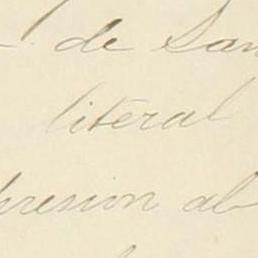 de San
literal
presion al